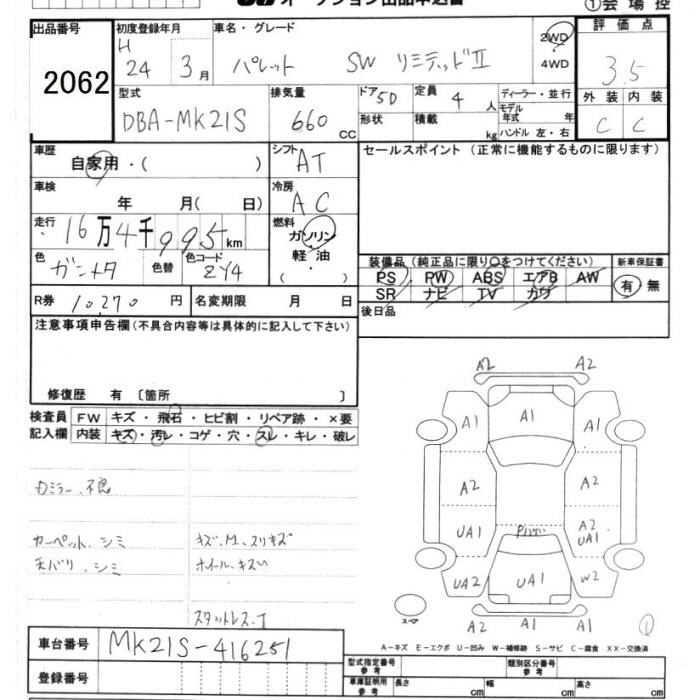 オークション出品申込書
①会場控
出品番号
2062
初度登録年月
H 24 3月
車名・グレード
パレット SW リミテッドⅡ
2WD
4WD
評価点
3.5
外装 内装
C C
型式
DBA-MK21S
排気量
660 cc
ドア 5D
形状
定員 4 人
積載 kg
ディーラー・並行
モデル年式 年
ハンドル 左・右
車歴
自家用・( )
シフト
AT
セールスポイント (正常に機能するものに限ります)
車検
年 月( 日)
冷房
AC
走行
16万4千995km
燃料
ガソリン
軽・油
・( )
色
ガンメタ
色替
色コード
ZY4
装備品(純正品に限り○をつけてください)
PS PW ABS エアB AW
SR ナビ TV カワ
新車保証書
有 無
R券 10,270 円
名変期限 月 日
後日品
注意事項申告欄(不具合内容等は具体的に記入して下さい)
修復歴 有〔箇所 〕
検査員記入欄
FW キズ・飛石・ヒビ割・リペア跡・×要
内装 キズ・汚レ・コゲ・穴・スレ・キレ・破レ
カーペット、シミ
天バリ、シミ
キズ、M、スリキズ
ホイール、キズ
スタットレス、T
A2 A2
A1 A1 A1
A2 A2
UA1 A2 UA1
UA2 UA1 W2
A2 A1 A2
スペア
①
A-キズ E-エクボ U-凹み W-補修跡 S-サビ C-腐食 XX-交換済
車台番号
MK21S-416251
登録番号
型式指定番号 参考
類別区分番号 参考
車庫証明用 参考
長さ cm
幅 cm
高さ cm